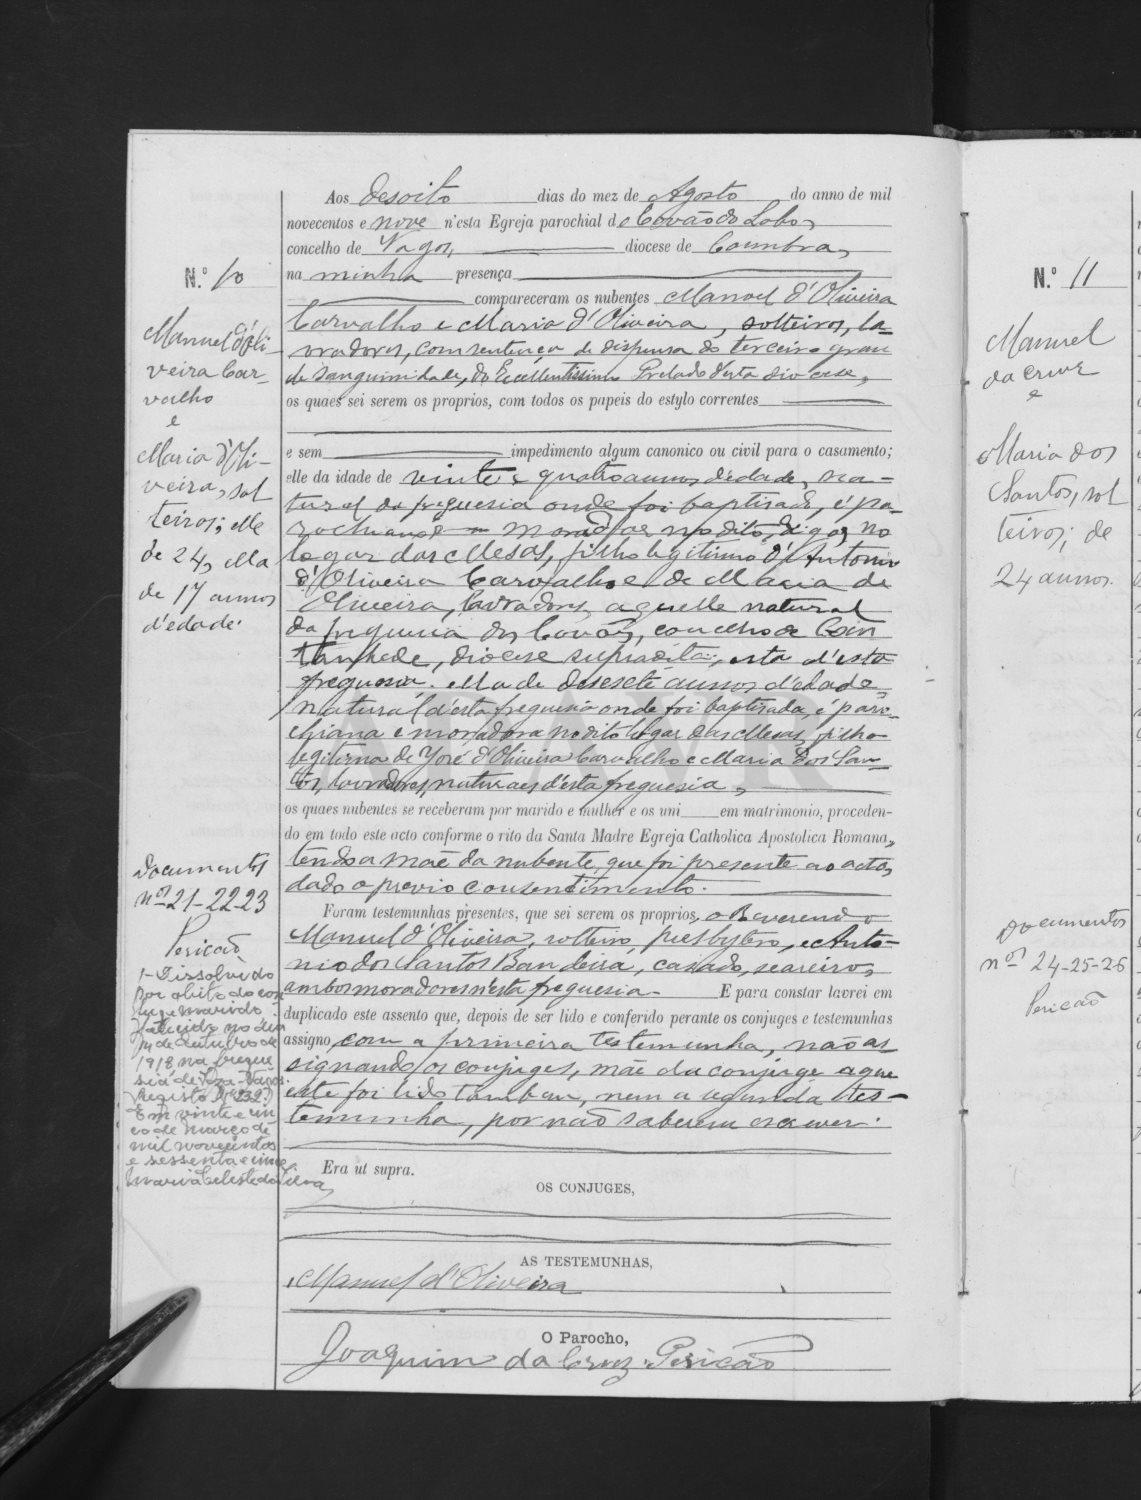 N.º 10
Manuel d'Oli-
veira Car-
valho
e
Maria d'Oli-
veira, sol
teiros; elle
de 24, ella
de 17 annos
d'edade.
Documentos
nos 21-22-23
Pericão
1 - Dissolvido
por obito do con
juge marido
falecido no dia
14 de outubro de
1918 na fregue
sia de
Registo Nº 232.
Em vinte e cin
co de março de
mil novecentos
e sessenta e cinco
Maria Celeste da Silva
Aos desoito dias do mez de Agosto do anno de mil
novecentos e nove n'esta Egreja parochial do Covão do Lobo,
concelho de Vagos, diocese de Coimbra,
na minha presença
compareceram os nubentes Manoel d'Oliveira
Carvalho e Maria d'Oliveira, solteiros, la-
vradores, com sentença de dispensa do terceiro grau
de sanguinidade, do Excellentissimo Prelado d'esta diocese,
os quaes sei serem os proprios, com todos os papeis do estylo correntes
e sem impedimento algum canonico ou civil para o casamento;
elle da idade de vinte e quatro annos d'edade, na-
tural da freguesia onde foi baptisado, é pa-
rochiano e morador no dito, digo, no
logar das Mesas, filho legitimo d'Antonio
d'Oliveira Carvalho e de Maria de
Oliveira, lavradores, aquelle natural
da freguesia dos Covões, concelho de Can
tanhede, diocese supradita, esta d'esta
freguesia. ella de desesete annos d'edade,
natural d'esta freguesia onde foi baptisada, é paro-
chiana e moradora no dito logar das Mesas, filha
legitima de José d'Oliveira Carvalho e Maria dos San-
tos, lavradores, naturaes d'esta freguesia,
os quaes nubentes se receberam por marido e mulher e os uni em matrimonio, proceden-
do em todo este acto conforme o rito da Santa Madre Egreja Catholica Apostolica Romana,
tendo a mãe da nubente, que foi presente ao acto,
dado o previo consentimento.
Foram testemunhas presentes, que sei serem os proprios, o Reverendo
Manuel d'Oliveira, solteiro, presbytero, e Anto-
nio dos Santos Bandeira, casado, seareiro,
ambos moradores n'esta freguesia. E para constar lavrei em
duplicado este assento que, depois de ser lido e conferido perante os conjuges e testemunhas
assigno com a primeira testemunha, não as
signando os conjuges, mãe da conjuge a que
este foi lido tambem, nem a segunda tes-
temunha, por não saberem escrever.
Era ut supra.
OS CONJUGES,
AS TESTEMUNHAS,
Manuel d'Oliveira
O Parocho,
Joaquim da Cruz Pericão
N.º 11
Manuel
da Cruz
e
Maria dos
Santos, sol
teiros; de
24 annos.
Documentos
nos 24-25-26
Pericão